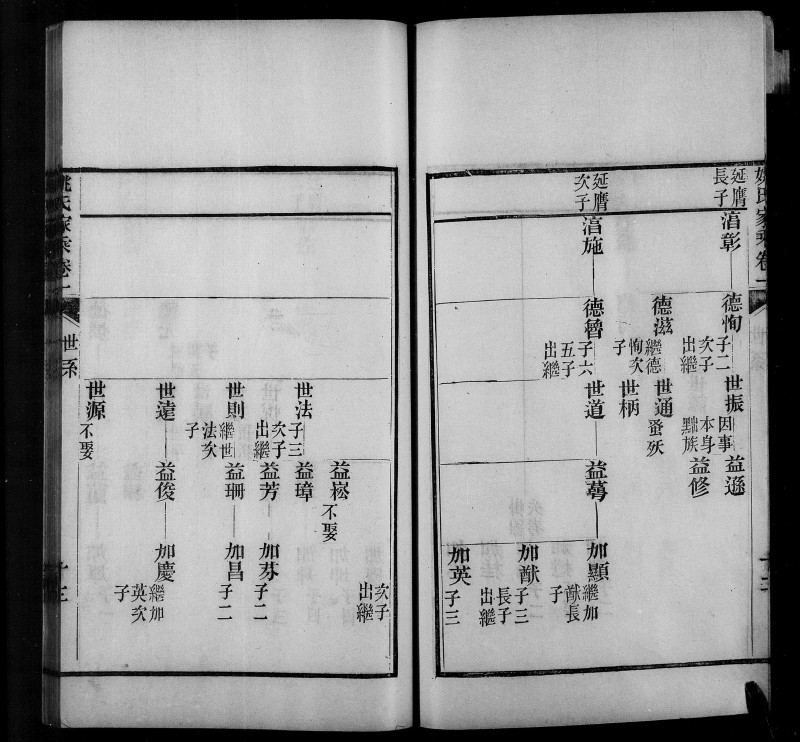 姚氏家乘卷一
延膺長子
湻彰
德恂 子二次子出繼
世振 因事本身黜族
益遜
益修
德滋 繼德恂次子
世通 蚤殀
世柄
延膺次子
湻施
德魯 子六五子出繼
世道
益蕚
加顯 繼加猷長子
加猷 子三長子出繼
加英 子三
次子出繼
益崧 不娶
世法 子三次子出繼
益璋
益芳
加芬 子二
世則 繼世法次子
益珊
加昌 子二
世遠
益俊
加慶 繼加英次子
世源 不娶
姚氏家乘卷一
世系
十三